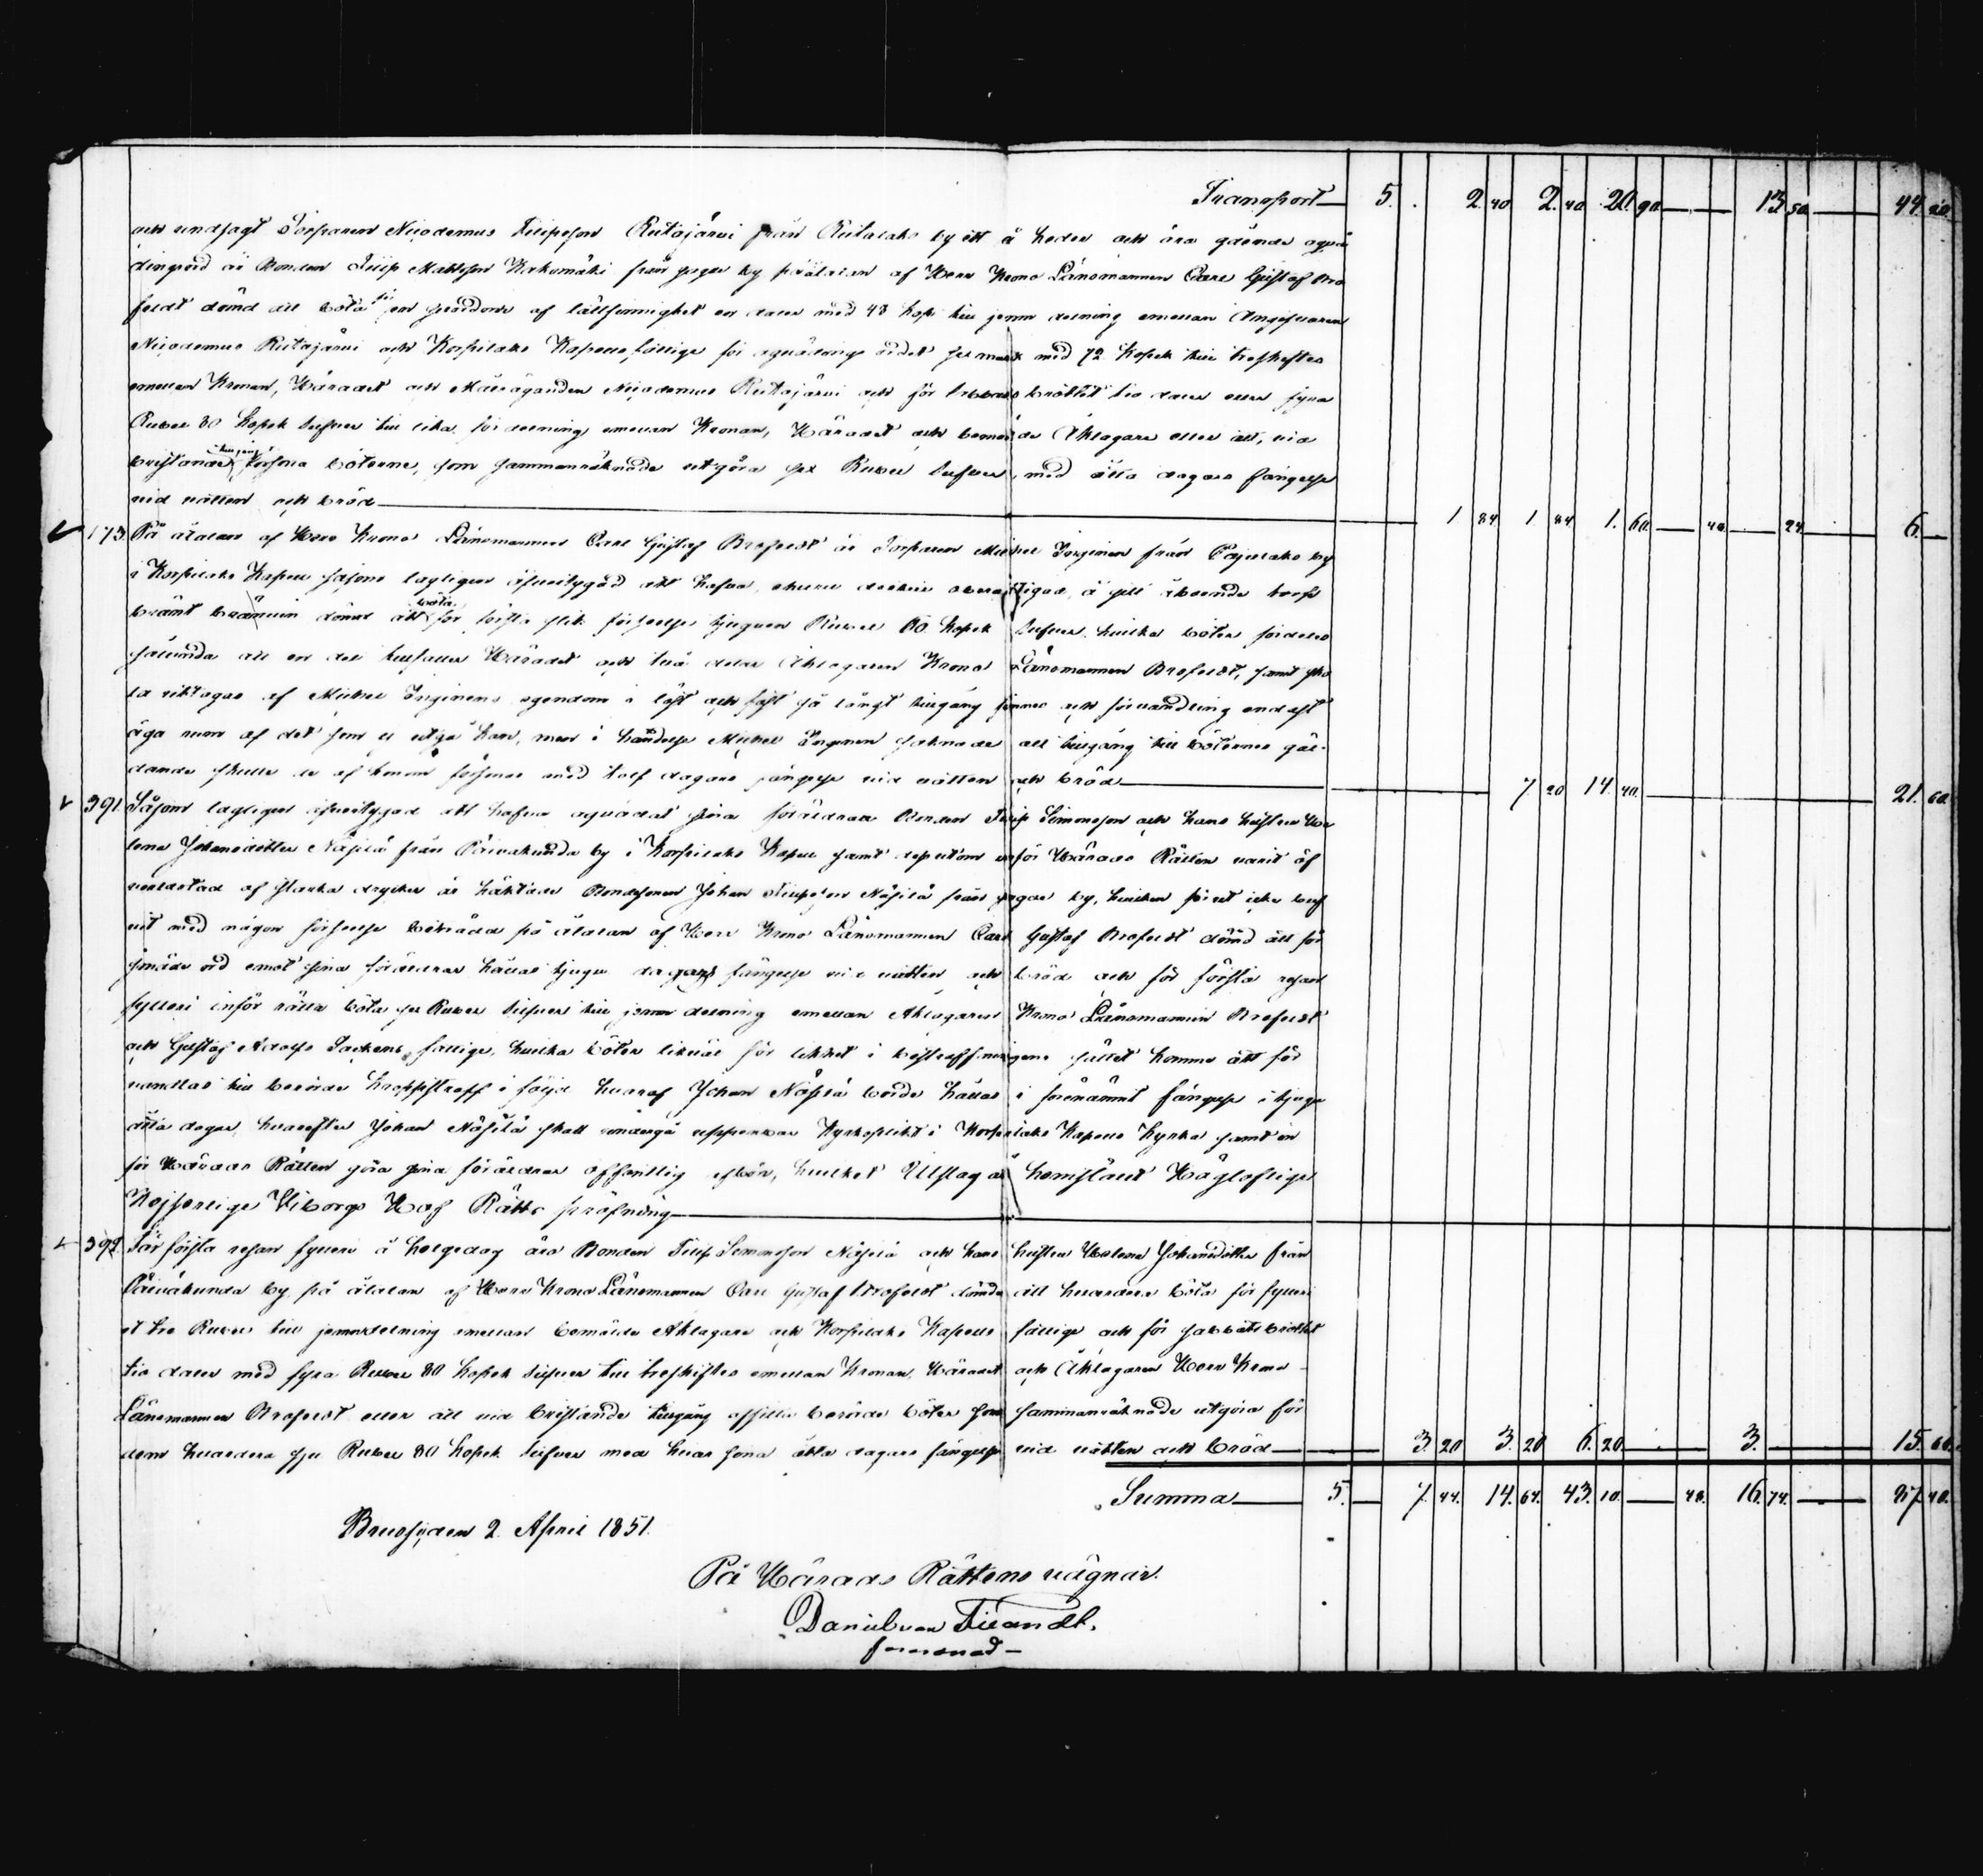 Transport 5. 2. 40 2. 40 20. 90 13 50 44. 20
och undsagt Torparen Nicodemus Filipsson Riitajärvi från Riitalaks by ett å heder och ära gående
dingsord är Bonden Filip Mattsson Kakomäki från by på åtalan af Herr Krono Länsmannen Carl Gustaf Bro
feldt dömd att böta för en af lättsinnighet en daler med 48 kop till jemn delning emellan Angifvaren
Nicodemus Riitajärvi och Korpilaks Kapells fattige för med 72 Kopek till treskiftes
emellan Kronan, Häradet och Målsäganden Nicodemus Riitajärvi och för brottet tio daler eller fyra
Rubel 80 Kopek Silfver till lika fördelning emellan Kronan, Häradet och bemälde Åklagare eller att, vid
bristande tillgång, försona böterne, som sammanräknade utgöra sex Rubel Silfver, med åtta dagars fängelse
vid vatten och bröd 1 84 1 84 1. 60 48 24 6.
173. På åtalan af Herr Krono Länsmannen Carl Gustaf Brofeldt är Torparen Michel Inginen från Pajulaks by
i Korpilaks Kapell såsom lagligen öfvertygad att hafva, å sitt åboende torp
bränt bränvin dömd att böta för första slik förseelse tjuguen Rubel 60 Kopek Silfver, hvilka böter fördelas
sålunda att en del tillfaller Häradet och två delar Åklagaren Krono Länsmannen Brofeldt, samt sko
la uttagas af Michel Inginens egendom i löst och fast så långt tillgång finnes och förvandling endast
äga rum af det som ej utgå kan, men i händelse Michel Inginen saknade all tillgång till böternes gäl-
dande skulle de af honom försonas med tolf dagars fängelse vid vatten och bröd 7. 20 14. 40. 21. 60
391. Såsom lagligen öfvertygad att hafva oqvädat sina föräldrar Bonden Filip Simonsson och hans hustru He
lena Johansdotter Näsilä från Päivakunda by i Korpilaks Kapell samt dessutom inför Härads Rätten varit öf
verlastad af starka drycker är häktade Bondesonen Johan Filipsson Näsilä från by, hvilken förut icke blif
vit med någon förseelse beträdd på åtalan af Herr Krono Länsmannen Carl Gustaf Brofeldt dömd att för
smäde ord emot sina föräldrar hållas tjugu dagars fängelse vid vatten och bröd och för första resan
fylleri inför rätta böta sex Rubel Silfver till jemn delning emellan Åklagaren Krono Länsmannen Brofeldt
och Gustaf Adolfs Sockens fattige, hvilka böter likväl för likhet i bestraffningens sättet komma att för
vandlas till berörde kroppsstraff i följd hvaraf Johan Näsilä borde hållas i förenämnt fängelse i tjugu
åtta dagar, hvarefter Johan Näsilä skall undergå uppenbar Kyrkoplikt i Korpilaks Kapells Kyrka samt in
för Härads Rätten göra sina föräldrar offentlig afbön, hvilket Utslag är hemstäldt Höglofliga
Kejserliga Viborgs Hof Rätts pröfning
392. För första resan fylleri å helgedag äro Bonden Filip Simonsson Näsilä och hans hustru Helena Johansdotter från
Päivakunda by, på åtalan af Herr Krono Länsmannen Carl Gustaf Brofeldt dömde att hvardera böta för fylleri
et tre Rubel till jemn delning emellan bemälde Åklagare och Korpilaks Kapells fattige och för sabbatsbrottet
tio daler med fyra Rubel 80 Kopek Silfver till treskiftes emellan Kronan, Häradet och Åklagaren Herr Krono
Länsmannen Brofeldt eller att vid bristande tillgång afsitta berörde böter som sammanräknade utgöra för
dem hvardera sju Rubel 80 Kopek Silfver med hvar sina åtta dagars fängelse vid vatten och bröd 3. 20 3. 20 6. 20 3. 15. 60.
Summa 5. 7. 44. 14. 64. 43. 10. 48. 16. 74. 87. 40.
den 2 April 1851.
På Härads Rättens vägnar.
Daniel von Tilandt.